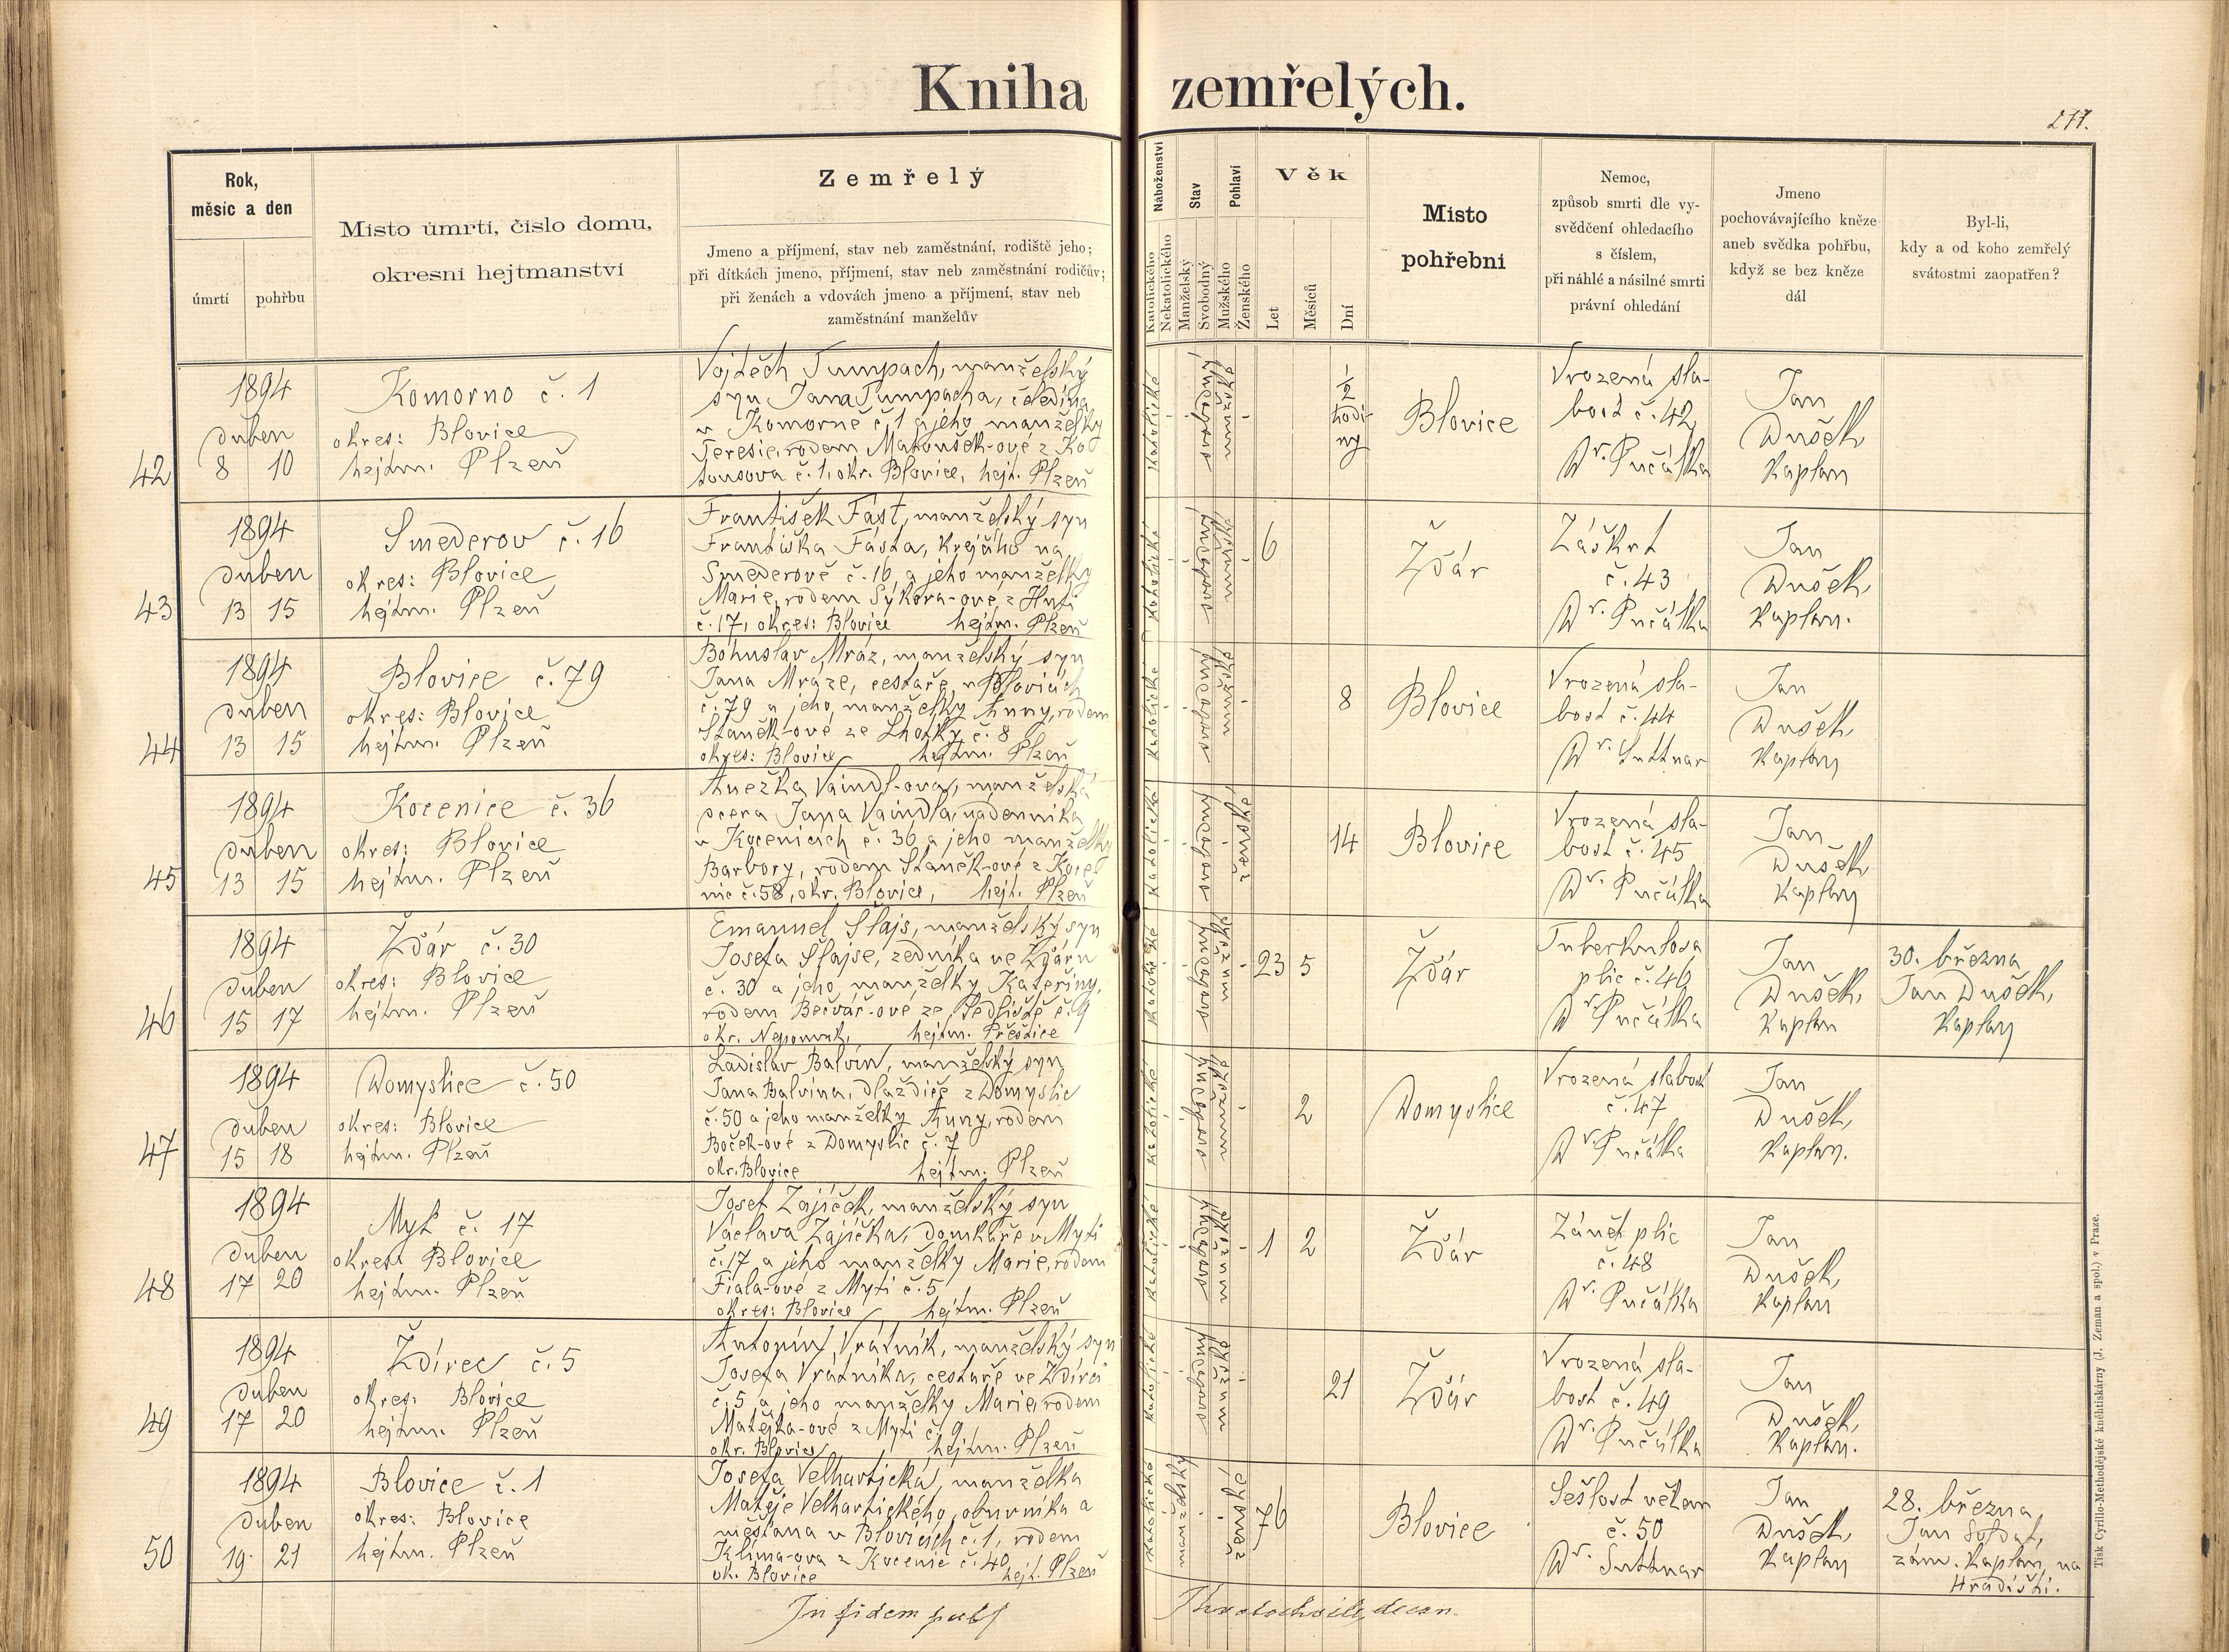 Kniha zemřelých.
277.
Rok,
měsíc a den
úmrtí
pohřbu
Místo úmrtí, číslo domu,
okresní hejtmanství
Zemřelý
Jmeno a příjmení, stav neb zaměstnání, rodiště jeho;
při dítkách jmeno, příjmení, stav neb zaměstnání rodičův;
při ženách a vdovách jmeno a příjmení, stav neb
zaměstnání manželův
Náboženství
Katolického
Nekatolického
Stav
Manželský
Svobodný
Pohlaví
Mužského
Ženského
Věk
Let
Měsíců
Dní
Místo
pohřební
Nemoc,
způsob smrti dle vy-
svědčení ohledacího
s číslem,
při náhlé a násilné smrti
právní ohledání
Jmeno
pochovávajícího kněze
aneb svědka pohřbu,
když se bez kněze
dál
Byl-li,
kdy a od koho zemřelý
svátostmi zaopatřen?
42
1894
duben
8 10
Komorno č. 1
okres: Blovice
hejtm. Plzeň
Vojtěch Tumpach, manželský
syn Jana Tumpacha, čeledína
v Komorně č. 1 a jeho manželky
Teresie, rodem Matoušek-ové z
č. 1, okr. Blovice, hejt. Plzeň
katolické
svobodný
mužské
1/2
hodi-
ny
Blovice
Vrozená sla-
bost č. 42
Dr. Pučálka
Jan
Dušek,
kaplan
43
1894
duben
13 15
Smederov č. 16
okres: Blovice
hejtm. Plzeň
František Fást, manželský syn
Františka Fásta, krejčího na
Smederově č. 16, a jeho manželky
Marie, rodem Sýkora-ové z Huti
č. 17, okres: Blovice hejtm. Plzeň
katolické
svobodný
mužské
6
Ždár
Záškrt
č. 43
Dr. Pučálka
Jan
Dušek,
kaplan.
44
1894
duben
13 15
Blovice č. 79
okres: Blovice
hejtm. Plzeň
Bohuslav Mráz, manželský syn
Jana Mráze, cestaře, v Blovicích
č. 79 a jeho manželky Anny, rodem
Staněk-ové ze Lhotky č. 8
okres: Blovice hejtm. Plzeň
katolické
svobodný
mužské
8
Blovice
Vrozená sla-
bost č. 44
Dr. Suttnar
Jan
Dušek,
kaplan
45
1894
duben
13 15
Kocenice č. 36
okres: Blovice
hejtm. Plzeň
Anežka Vaindl-ova, manželská
dcera Jana Vaindla, nádenníka
v Kocenicích č. 36 a jeho manželky
Barbory, rodem Staněk-ové z Koce-
nic č. 58, okr. Blovice, hejt. Plzeň
katolické
svobodný
ženské
14
Blovice
Vrozená sla-
bost č. 45
Dr. Pučálka
Jan
Dušek,
kaplan
46
1894
duben
15 17
Ždár č. 30
okres: Blovice
hejtm. Plzeň
Emanuel Šlajs, manželský syn
Josefa Šlajse, zedníka ve Ždáru
č. 30 a jeho manželky Kateřiny,
rodem Bečvář-ové ze Sedliště č. 9
okr. Nepomuk, hejtm. Přeštice
katolické
svobodný
mužské
23 5
Ždár
Tuberkulosa
plic č. 46
Dr. Pučálka
Jan
Dušek,
kaplan
30. března
Jan Dušek,
kaplan
47
1894
duben
15 18
Domyslice č. 50
okres: Blovice
hejtm. Plzeň
Ladislav Balvín, manželský syn
Jana Balvína, dlaždiče z Domyslic
č. 50 a jeho manželky Anny, rodem
Boček-ové z Domyslic č. 7
okr. Blovice hejtm. Plzeň
katolické
svobodný
mužské
2
Domyslice
Vrozená slabost
č. 47
Dr. Pučálka
Jan
Dušek,
kaplan.
48
1894
duben
17 20
Myť č. 17
okres: Blovice
hejtm. Plzeň
Josef Zajíček, manželský syn
Václava Zajíčka, domkáře v Myti
č. 17 a jeho manželky Marie, rodem
Fiala-ové z Myti č. 5
okres: Blovice hejtm. Plzeň
katolické
svobodný
mužské
1 2
Ždár
Zánět plic
č. 48
Dr. Pučálka
Jan
Dušek,
kaplan
49
1894
duben
17 20
Ždírec č. 5
okres: Blovice
hejtm. Plzeň
Antonín Vrátník, manželský syn
Josefa Vrátníka, cestaře ve Ždírci
č. 5 a jeho manželky Marie, rodem
Matějka-ové z Myti č. 9
okr. Blovice, hejtm. Plzeň
katolické
svobodný
mužské
21
Ždár
Vrozená sla-
bost č. 49
Dr. Pučálka
Jan
Dušek,
kaplan.
50
1894
duben
19. 21
Blovice č. 1
okres: Blovice
hejtm. Plzeň
Josefa Velhartická, manželka
Matěje Velhartického, obuvníka a
měšťana v Blovicích č. 1, rodem
Klíma-ova z Kocenic č. 40
ok. Blovice hejt. Plzeň
katolické
manželský
ženské
76
Blovice
Sešlost věkem
č. 50
Dr. Suttnar
Jan
Dušek,
kaplan
28. března
Jan Soldát,
zám. kaplan, na
Hradišti.
In fidem publ
decan.
Tisk Cyrillo-Methodějské knihtiskárny (J. Zeman a spol.) v Praze.